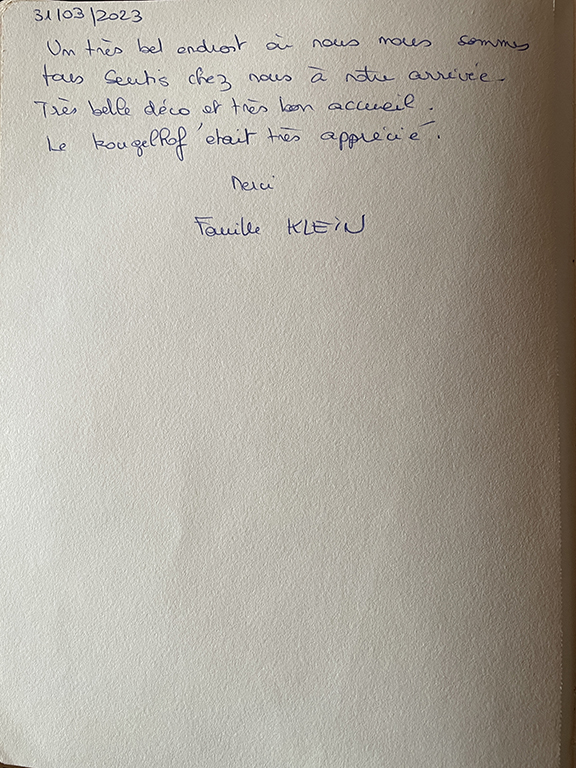 31/03/2023
Un très bel endroit où nous nous sommes
tous sentis chez nous à notre arrivée.
Très belle déco et très bon accueil.
Le kougelhof était très apprécié.
Merci
Famille KLEIN